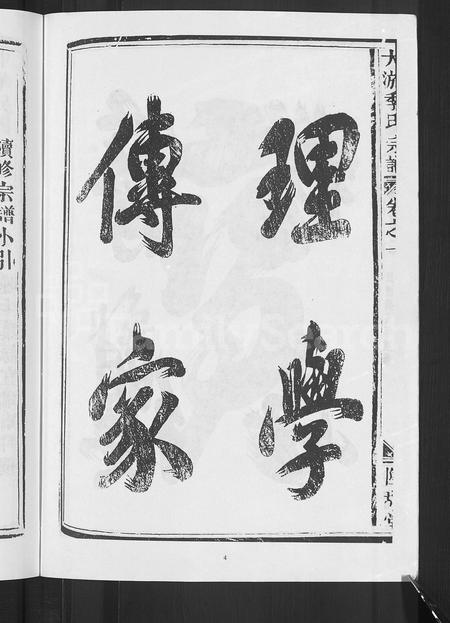 大游季氏宗譜
卷之一
理學
傳家
續修宗譜小引
4
FamilySearch